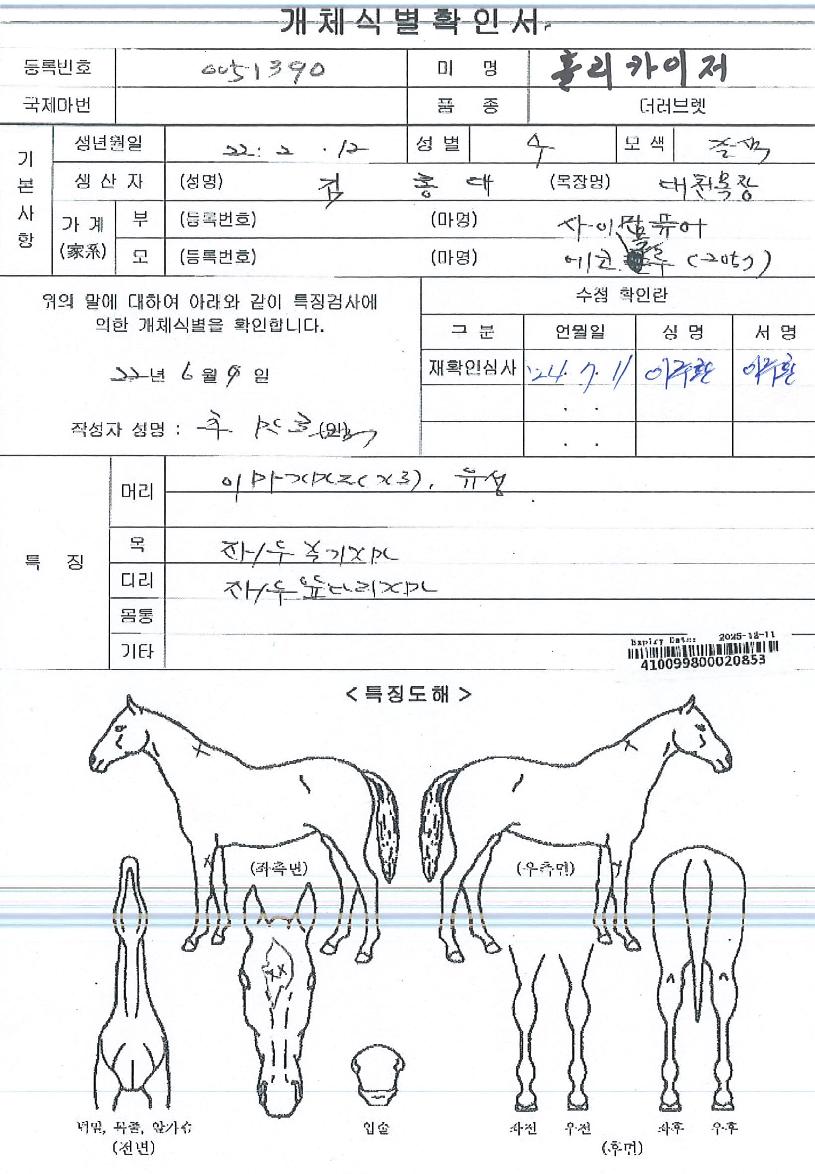 개체식별확인서
등록번호 0051390 마 명 홀리카이저
국제마번 품 종 더러브렛
기본사항
생년월일 22. 2 . 12 성 별 수 모 색 갈색
생 산 자 (성명) 김 홍 대 (목장명) 대천목장
가 계 (家系) 부 (등록번호) (마명) 사이먼퓨어
모 (등록번호) (마명) 에코 루 (2057)
위의 말에 대하여 아래와 같이 특징검사에
의한 개체식별을 확인합니다.
22년 6월 9일
작성자 성명 : (인)
수정 확인란
구 분 연월일 성 명 서 명
재확인심사 '24. 7. 11 이주환 이주환
. .
. .
특 징
머리 이마가마(x3), 유성
목 좌/우 목가마
다리 좌/우 앞다리가마
몸통
기타
Expiry Date: 2025-12-11
410099800020853
<특징도해>
(좌측면) (우측면)
턱밑, 목줄, 앞가슴 (전면)
입술
좌전 우전 좌후 우후
(후면)